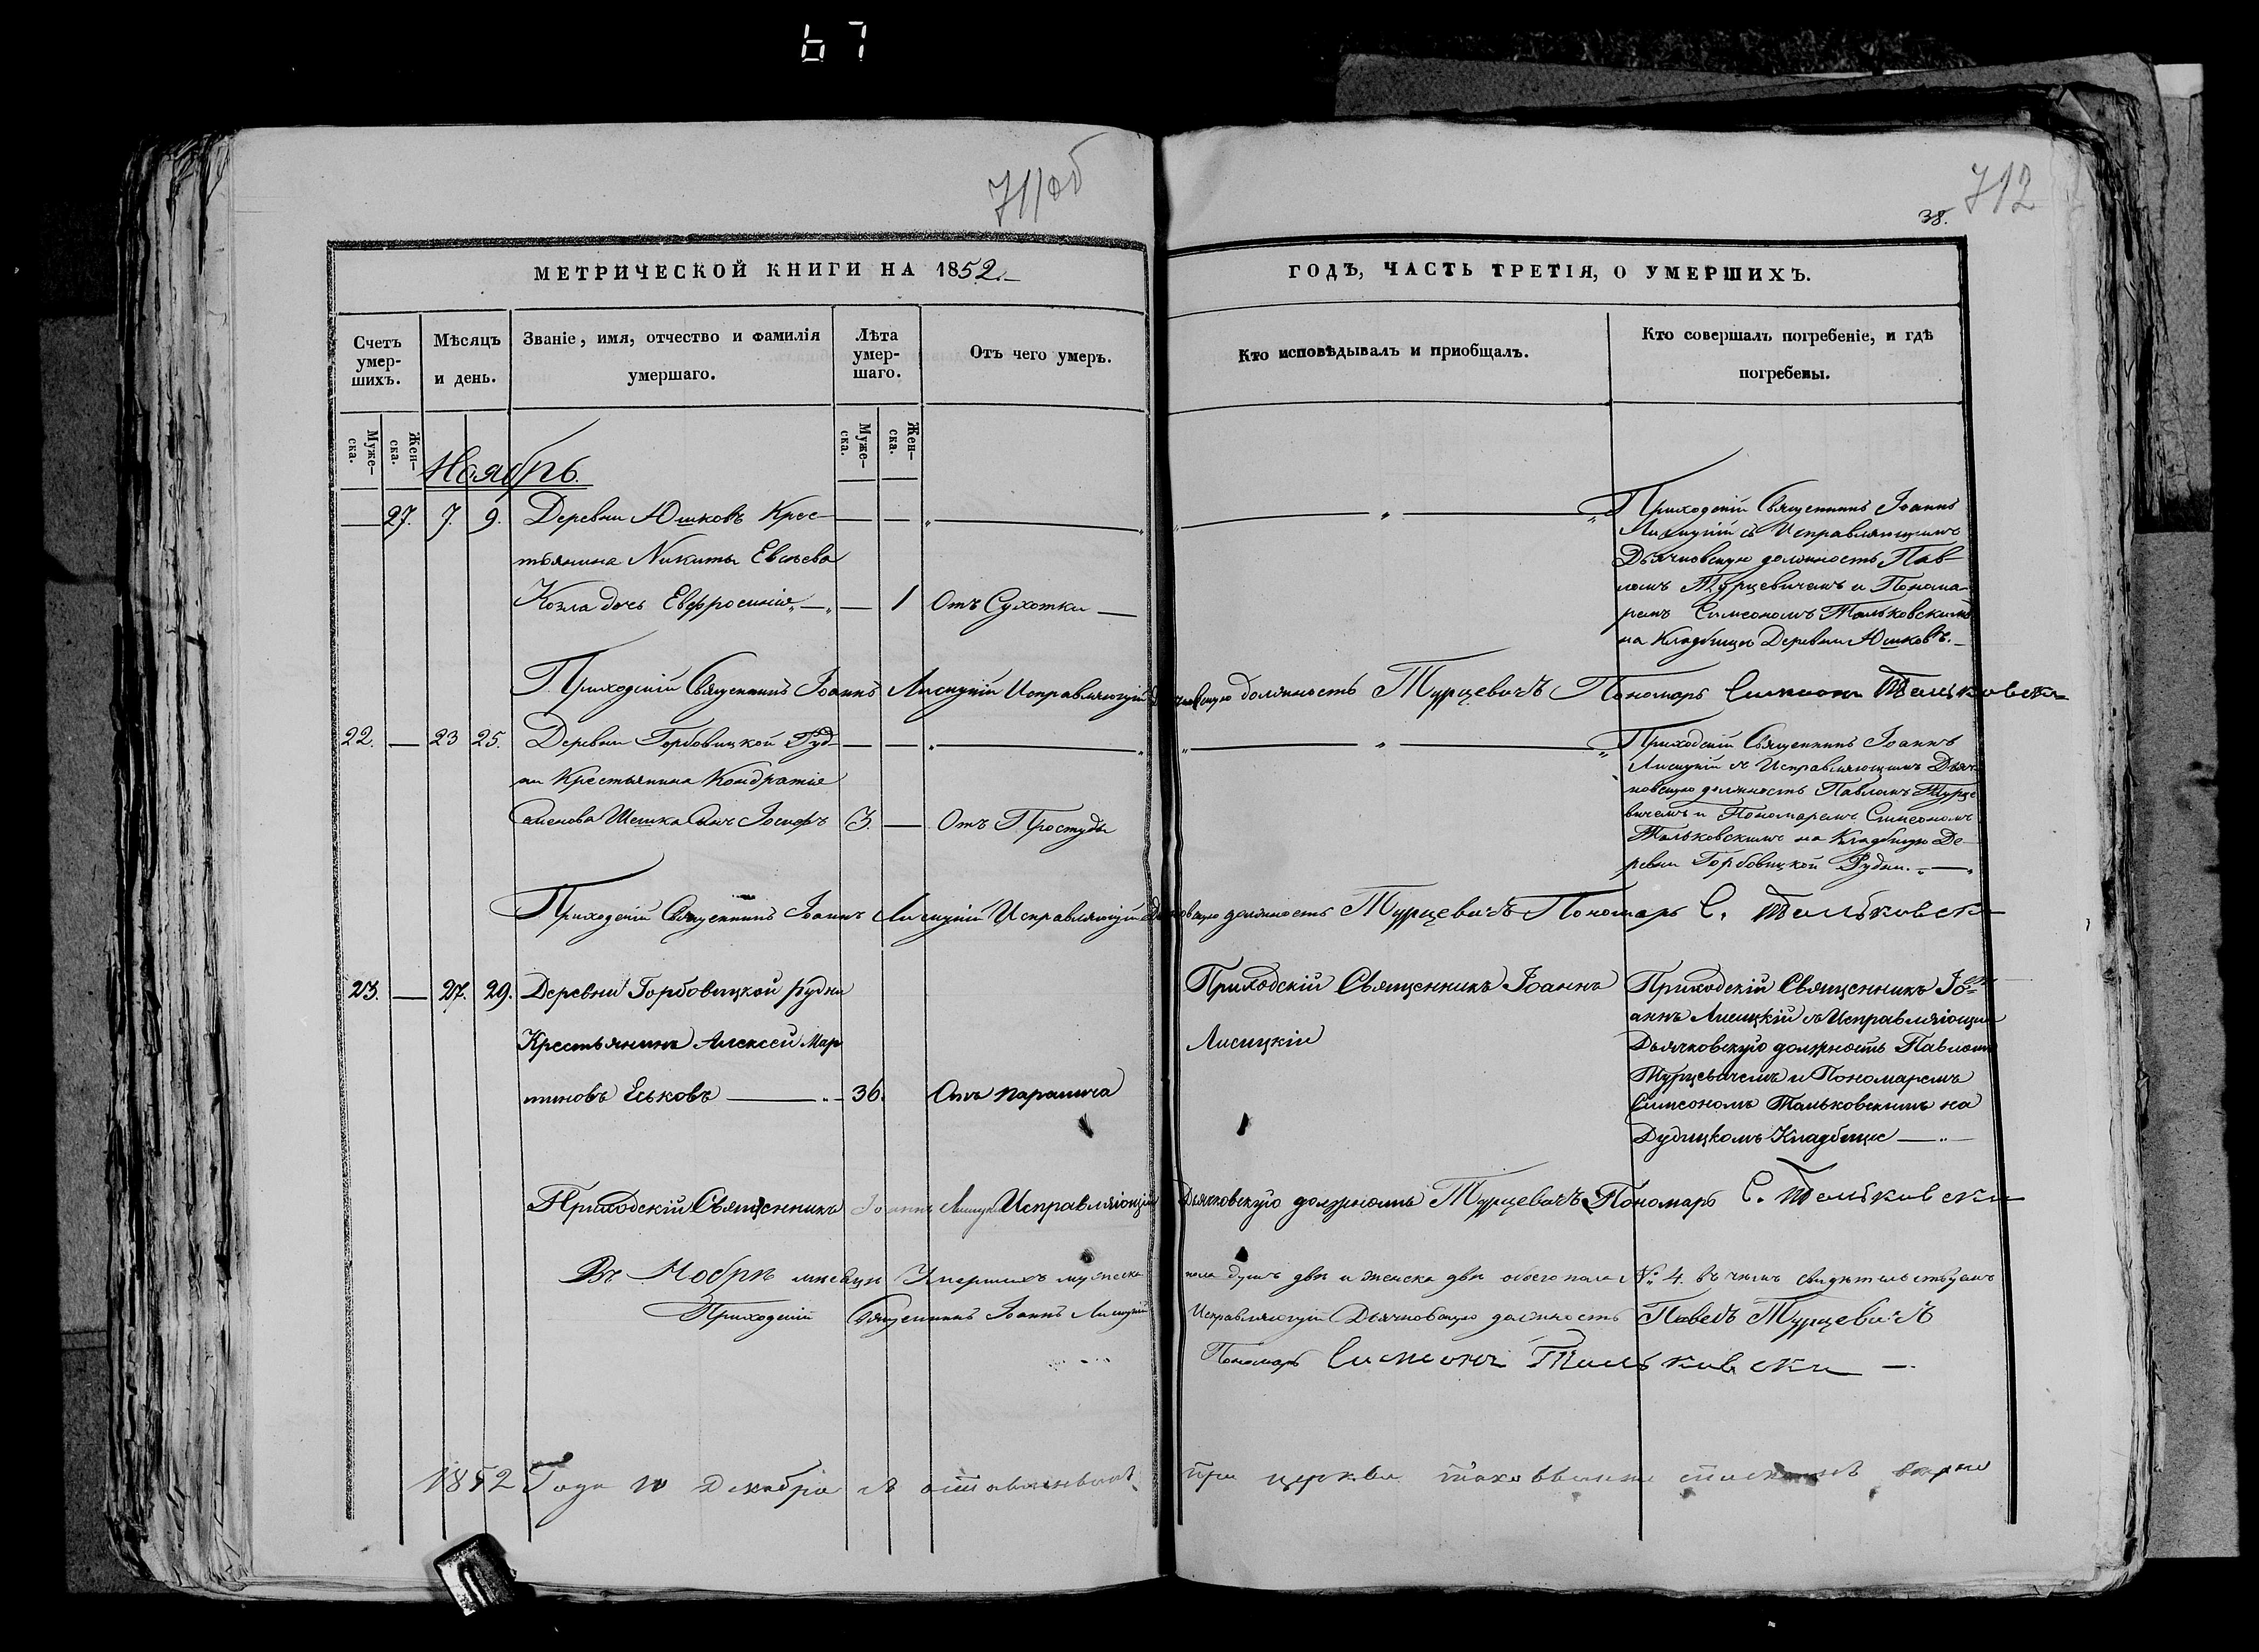 67
711об
712
38.
МЕТРИЧЕСКОЙ КНИГИ НА 1852.
ГОДЪ, ЧАСТЬ ТРЕТІЯ, О УМЕРШИХЪ.
Счетъ умер-шихъ.
Мѣсяцъ и день.
Званіе, имя, отчество и фамилія умершаго.
Лѣта умер-шаго.
Отъ чего умеръ.
Кто исповѣдывалъ и приобщалъ.
Кто совершалъ погребеніе, и гдѣ погребены.
Муже-ска.
Жен-ска.
Муже-ска.
Жен-ска.
Ноябрь.
27. 7. 9. Деревни Юшковъ Крес-
тьянина Никиты Евсѣева
Козла дочь Евфросинія 1 Отъ Сухотки
Приходскій Священникъ Іоаннъ
Лисицкій съ Исправляющимъ
Дьячковскую должность Пав-
ломъ Турцевичемъ и Понома-
ремъ Симеономъ Тальковскимъ
на Кладбищѣ Деревни Юшковъ.
Приходскій Священникъ Іоаннъ Лисицкій Исправляющій Дьячковскую должность Турцевичъ Пономарь Симеонъ Тальковски
22. 23 25. Деревни Горбовицкой Руд-
ни Крестьянина Кондратія
Семенова Шешка сынъ Іосифъ 3. Отъ Простуды
Приходскій Священникъ Іоаннъ
Лисицкій съ Исправляющимъ Дьяч-
ковскую должность Павломъ Турце-
вичемъ и Пономаремъ Симеономъ
Тальковскимъ на Кладбищѣ Де-
ревни Горбовицкой Рудни.
Приходскій Священникъ Іоаннъ Лисицкій Исправляющій Дьячковскую должность Турцевичъ Пономарь С. Тальковски
23. 27. 29. Деревни Горбовицкой Рудни
Крестьянинъ Алексей Мар
тиновъ Еськовъ 36. Отъ паралича
Приходскій Священникъ Іоаннъ
Лисицкій
Приходскій Священникъ Іо-
аннъ Лисицкій съ Исправляющим
Дьячковскую должность Павломъ
Турцевичемъ и Пономаремъ
Симеономъ Тальковскимъ на
Дудицкомъ Кладбище
Приходскій Священникъ Іоаннъ Лисицк Исправляющій Дьячковскую должность Турцевичъ Пономарь С. Тальковски
Въ Ноябрѣ мѣсяцѣ Умершихъ мужеска пола душъ двѣ и женска двѣ обоего пола № 4. въ чемъ свидѣтельствуемъ
Приходскій Священникъ Іоаннъ Лисицкій Исправляющій Дьячковскую должность Павелъ Турцевичъ
Пономарь Симеонъ Тальковски
1852 Года Декабря съ при церкви вѣрно